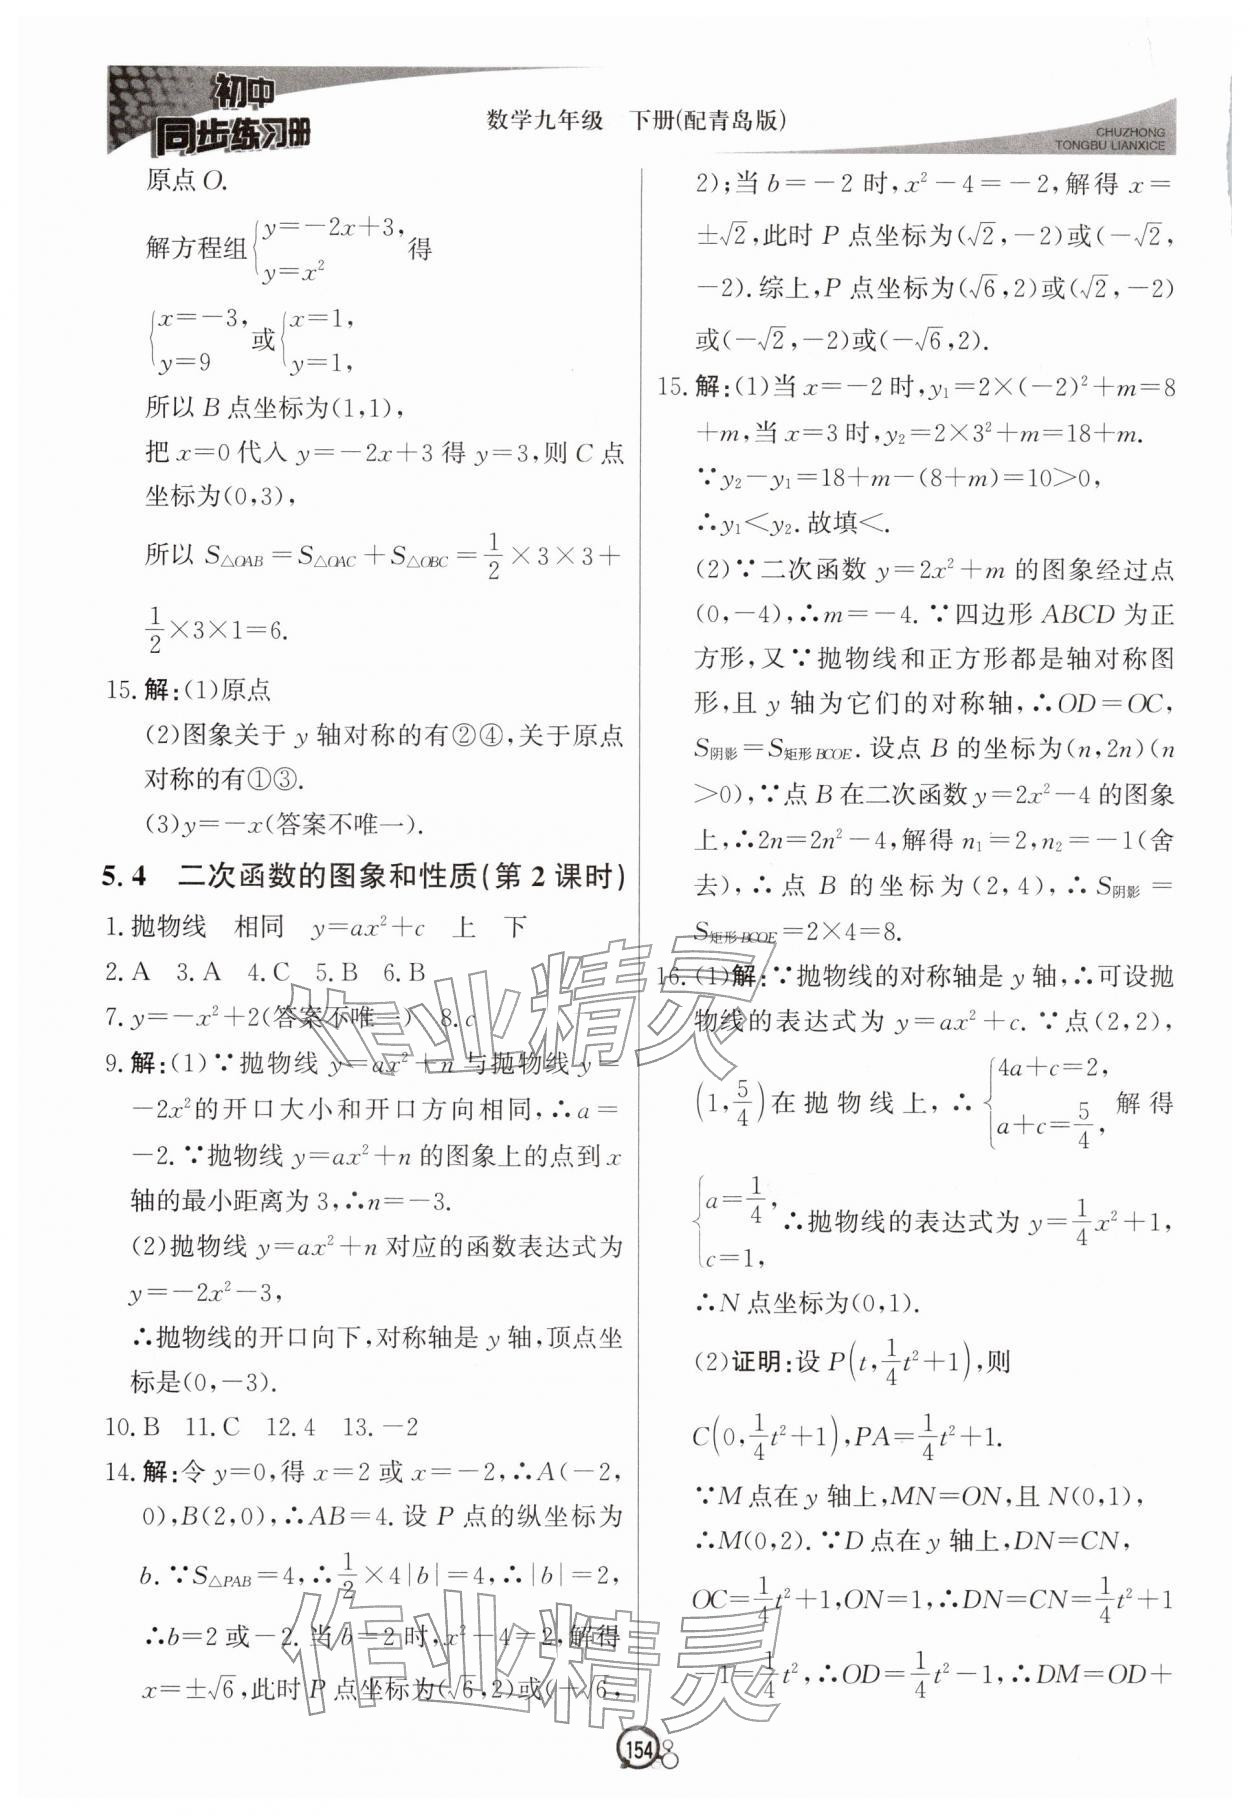 初中
同步练习册
数学九年级　下册(配青岛版)
CHUZHONG
TONGBU LIANXICE
原点O.
解方程组{y=-2x+3, y=x²　得
{x=-3, y=9　或{x=1, y=1,
所以B点坐标为(1,1),
把x=0代入y=-2x+3得y=3,则C点
坐标为(0,3),
所以S△OAB=S△OAC+S△OBC=1/2×3×3+
1/2×3×1=6.
15.解:(1)原点
(2)图象关于y轴对称的有②④,关于原点
对称的有①③.
(3)y=-x(答案不唯一).
5.4　二次函数的图象和性质(第2课时)
1.抛物线　相同　y=ax²+c　上　下
2.A　3.A　4.C　5.B　6.B
7.y=-x²+2(答案不唯一)　8.c
9.解:(1)∵抛物线y=ax²+n与抛物线y
-2x²的开口大小和开口方向相同,∴a=
-2.∵抛物线y=ax²+n的图象上的点到x
轴的最小距离为3,∴n=-3.
(2)抛物线y=ax²+n对应的函数表达式为
y=-2x²-3,
∴抛物线的开口向下,对称轴是y轴,顶点坐
标是(0,-3).
10.B　11.C　12.4　13.-2
14.解:令y=0,得x=2或x=-2,∴A(-2,
0),B(2,0),∴AB=4.设P点的纵坐标为
b.∵S△PAB=4,∴1/2×4|b|=4,∴|b|=2,
∴b=2或-2.当b=2时,x²-4=2,解得
x=±√6,此时P点坐标为(√6,2)或(-√6,
2);当b=-2时,x²-4=-2,解得x=
±√2,此时P点坐标为(√2,-2)或(-√2,
-2).综上,P点坐标为(√6,2)或(√2,-2)
或(-√2,-2)或(-√6,2).
15.解:(1)当x=-2时,y₁=2×(-2)²+m=8
+m,当x=3时,y₂=2×3²+m=18+m.
∵y₂-y₁=18+m-(8+m)=10>0,
∴y₁<y₂.故填<.
(2)∵二次函数y=2x²+m的图象经过点
(0,-4),∴m=-4.∵四边形ABCD为正
方形,又∵抛物线和正方形都是轴对称图
形,且y轴为它们的对称轴,∴OD=OC,
S阴影=S矩形BCOE.设点B的坐标为(n,2n)(n
>0),∵点B在二次函数y=2x²-4的图象
上,∴2n=2n²-4,解得n₁=2,n₂=-1(舍
去),∴点B的坐标为(2,4),∴S阴影=
S矩形BCOE=2×4=8.
16.(1)解:∵抛物线的对称轴是y轴,∴可设抛
物线的表达式为y=ax²+c.∵点(2,2),
(1,5/4)在抛物线上,∴{4a+c=2, a+c=5/4,　解得
{a=1/4, c=1,　∴抛物线的表达式为y=1/4x²+1,
∴N点坐标为(0,1).
(2)证明:设P(t,1/4t²+1),则
C(0,1/4t²+1),PA=1/4t²+1.
∵M点在y轴上,MN=ON,且N(0,1),
∴M(0,2).∵D点在y轴上,DN=CN,
OC=1/4t²+1,ON=1,∴DN=CN=1/4t²+1
-1=1/4t²,∴OD=1/4t²-1,∴DM=OD+
作业精灵
作业精灵
154